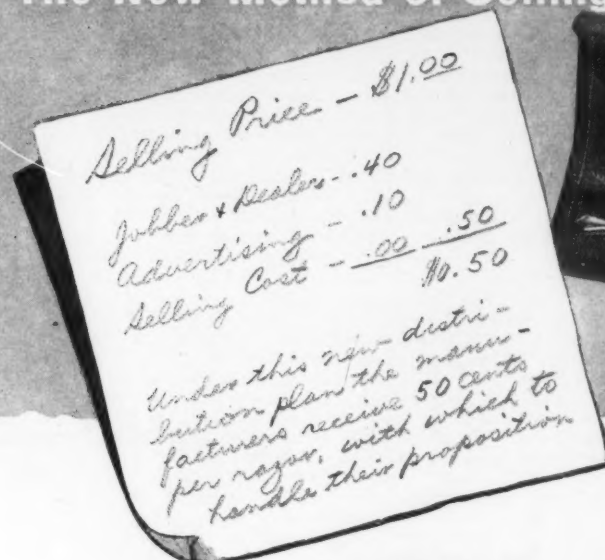 The New Method of Selling
Selling Price - $1.00
Jobber & Dealer - .40
Advertising - .10
Selling Cost - .00 .50
$0.50
Under this new distri-
bution plan the manu-
facturers receive 50 cents
per razor, with which to
handle their proposition